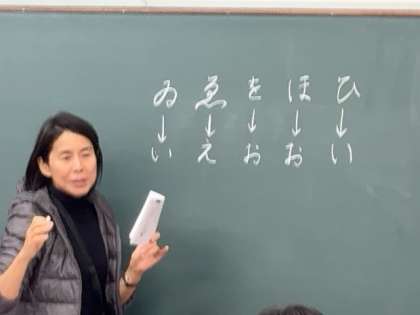 ひ↓い
ほ↓お
を↓お
ゑ↓え
ゐ↓い